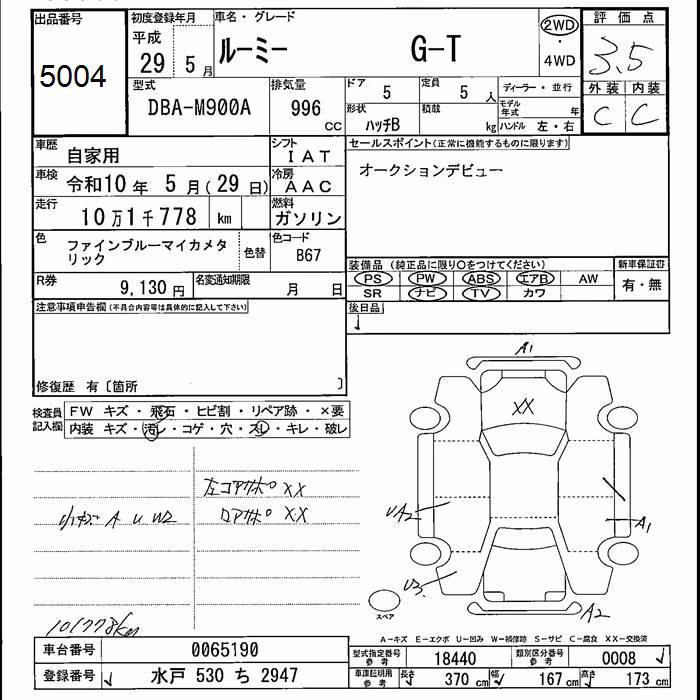 出品番号
5004
初度登録年月
平成
29 5月
車名・グレード
ルーミー G-T
2WD
・
4WD
評価点
3.5
外装 内装
C C
型式
DBA-M900A
排気量
996
CC
ドア 5
定員 5 人
形状 ハッチB
積載 kg
ディーラー・並行
モデル年式 年
ハンドル 左・右
車歴 自家用
シフト IAT
車検 令和10年 5月(29日)
冷房 AAC
走行 10万1千778 km
燃料 ガソリン
色 ファインブルーマイカメタリック
色替
色コード B67
R券 9,130円
名変通知期限 月 日
セールスポイント(正常に機能するものに限ります)
オークションデビュー
装備品(純正品に限り○をつけてください)
PS PW ABS エアB AW
SR ナビ TV カワ
新車保証書
有・無
後日品
注意事項申告欄(不具合内容等は具体的に記入して下さい)
修復歴 有〔箇所 〕
検査員記入欄
FW キズ・飛石・ヒビ割・リペア跡・×要
内装 キズ・汚レ・コゲ・穴・スレ・キレ・破レ
左コアサポ XX
ロアサポ XX
小キズ A U W2
101778km
A1
XX
UA2
A1
U3
A2
スペア
A-キズ E-エクボ U-凹み W-補修跡 S-サビ C-腐食 XX-交換済
車台番号 0065190
登録番号 水戸 530 ち 2947
型式指定番号 参考 18440
類別区分番号 参考 0008
車庫証明用 参考 長さ 370 cm 幅 167 cm 高さ 173 cm